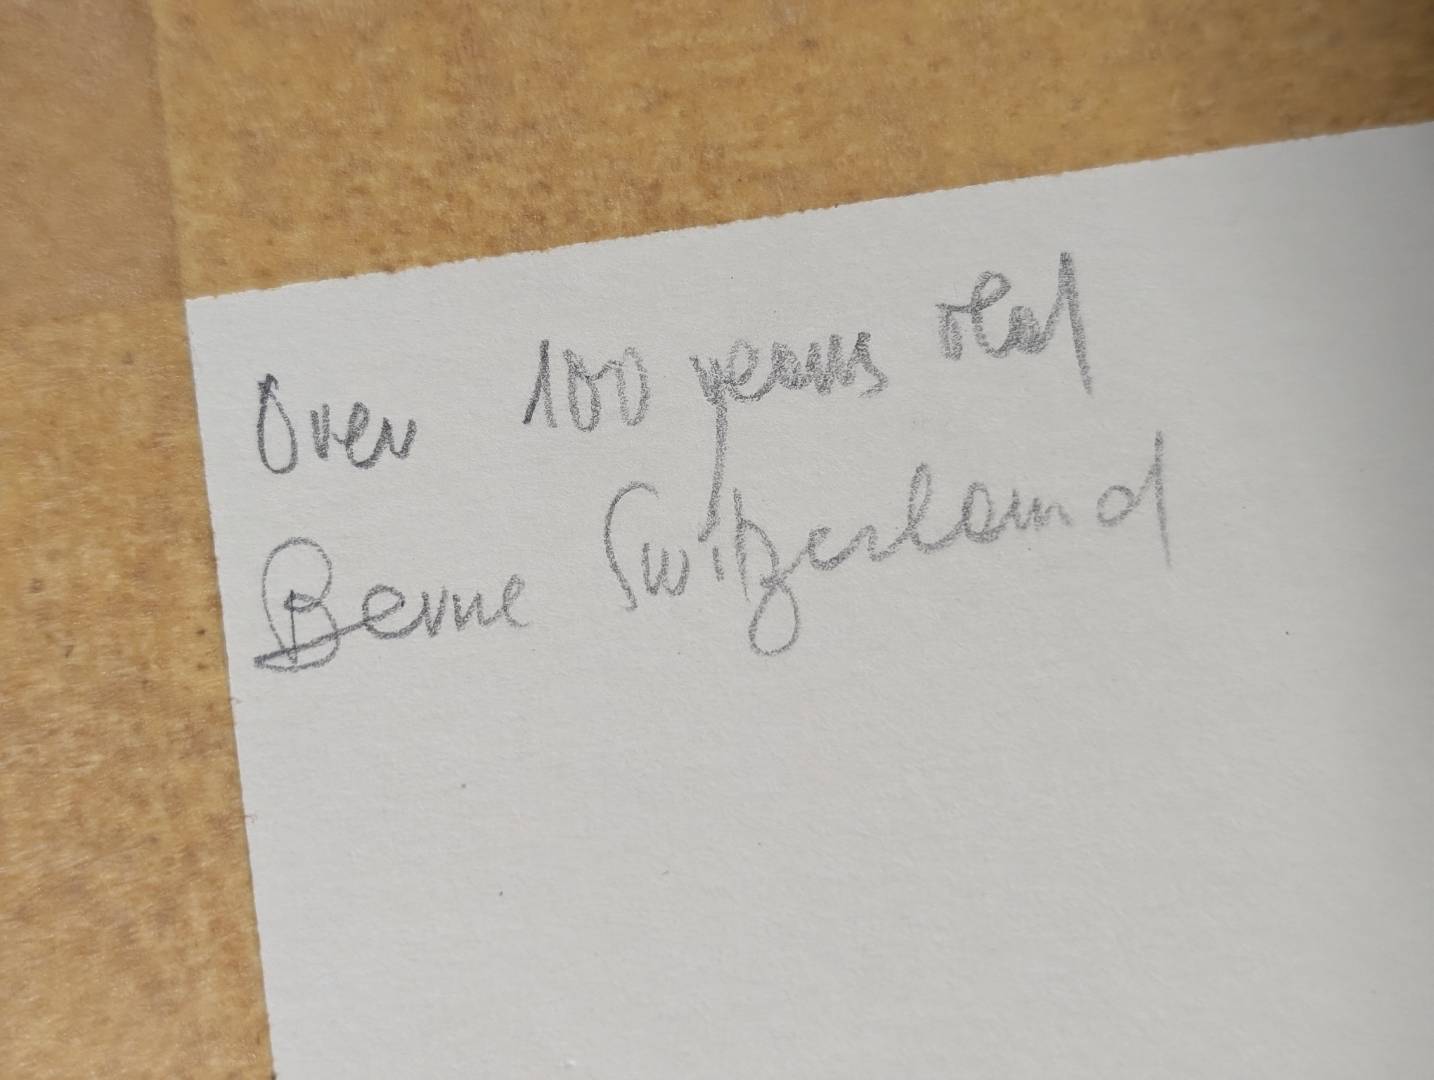 Over 100 years old
Berne Switzerland